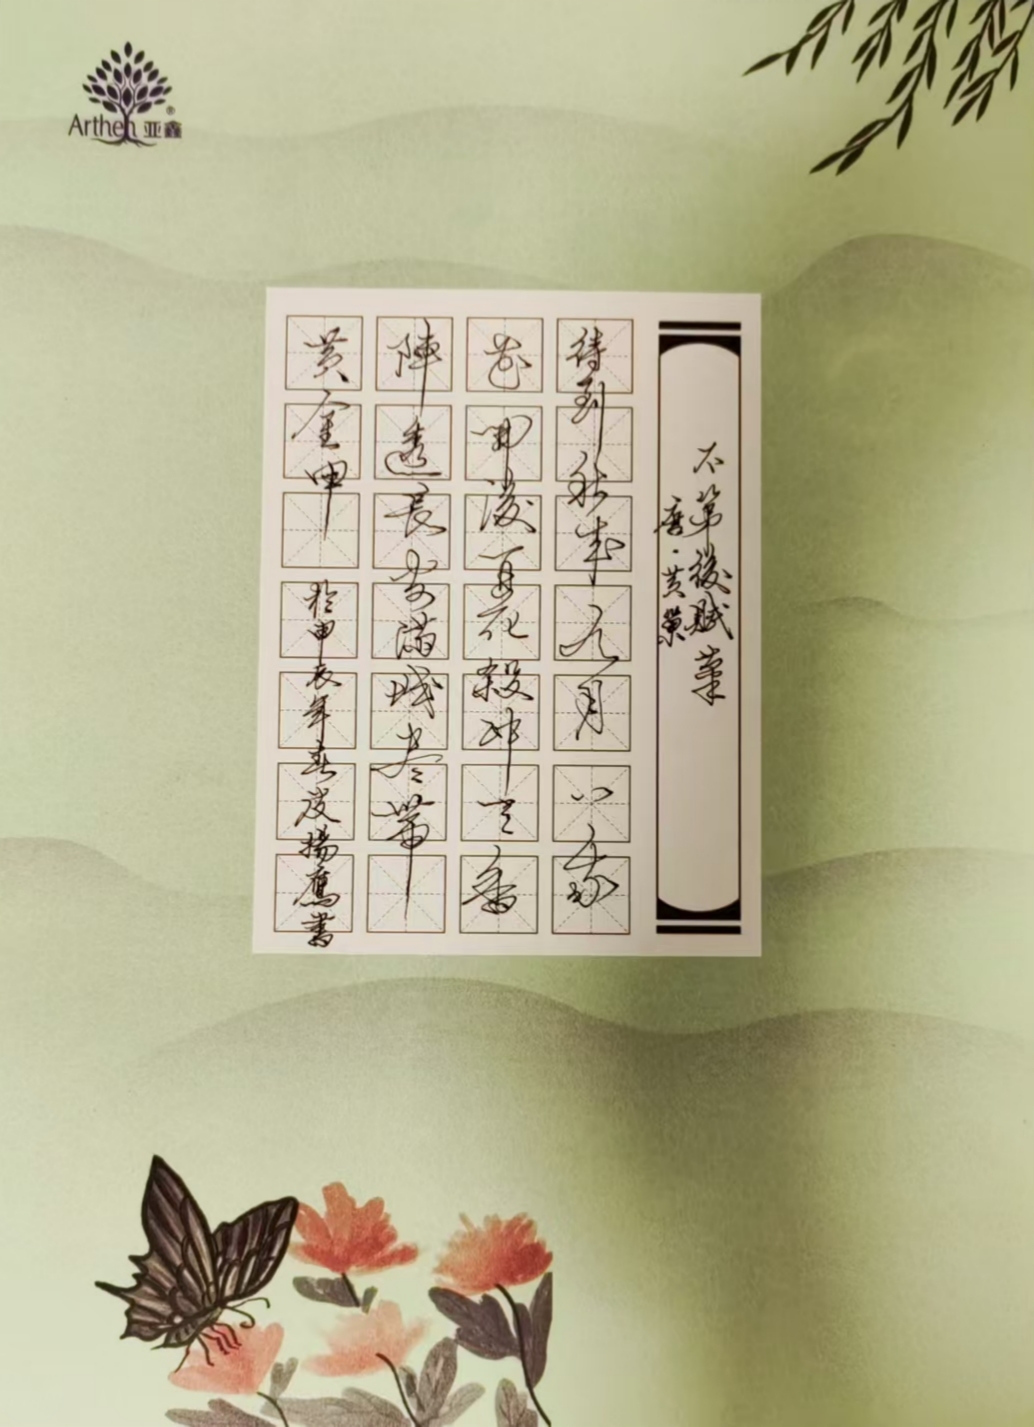 Arthen 亚鑫
不第後賦菊
唐·黄巢
待到秋来九月八我
花開後百花殺冲天香
陣透長安滿城尽帶
黄金甲
於甲辰年春皮揚鷹書